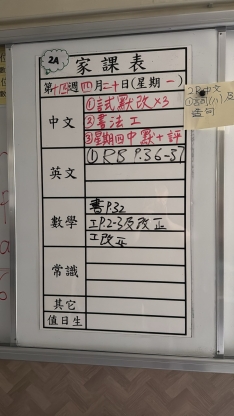 2A
家課表
第十三週四月二十日(星期一)
中文
①試默改×3
②書法工
③星期四中默+評
英文
①RB P.36-37
數學
書P.32
工P.2-3及改正
工改正
常識
其它
值日生
造句